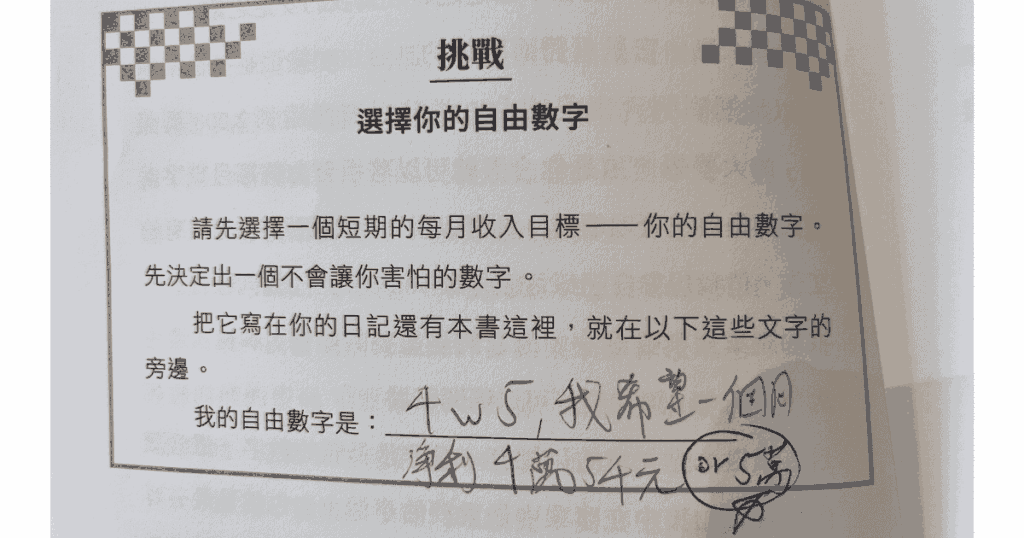 挑戰
選擇你的自由數字
請先選擇一個短期的每月收入目標——你的自由數字。
先決定出一個不會讓你害怕的數字。
把它寫在你的日記還有本書這裡，就在以下這些文字的
旁邊。
我的自由數字是：4w5，我希望一個月
淨利4萬5千元 or 5萬